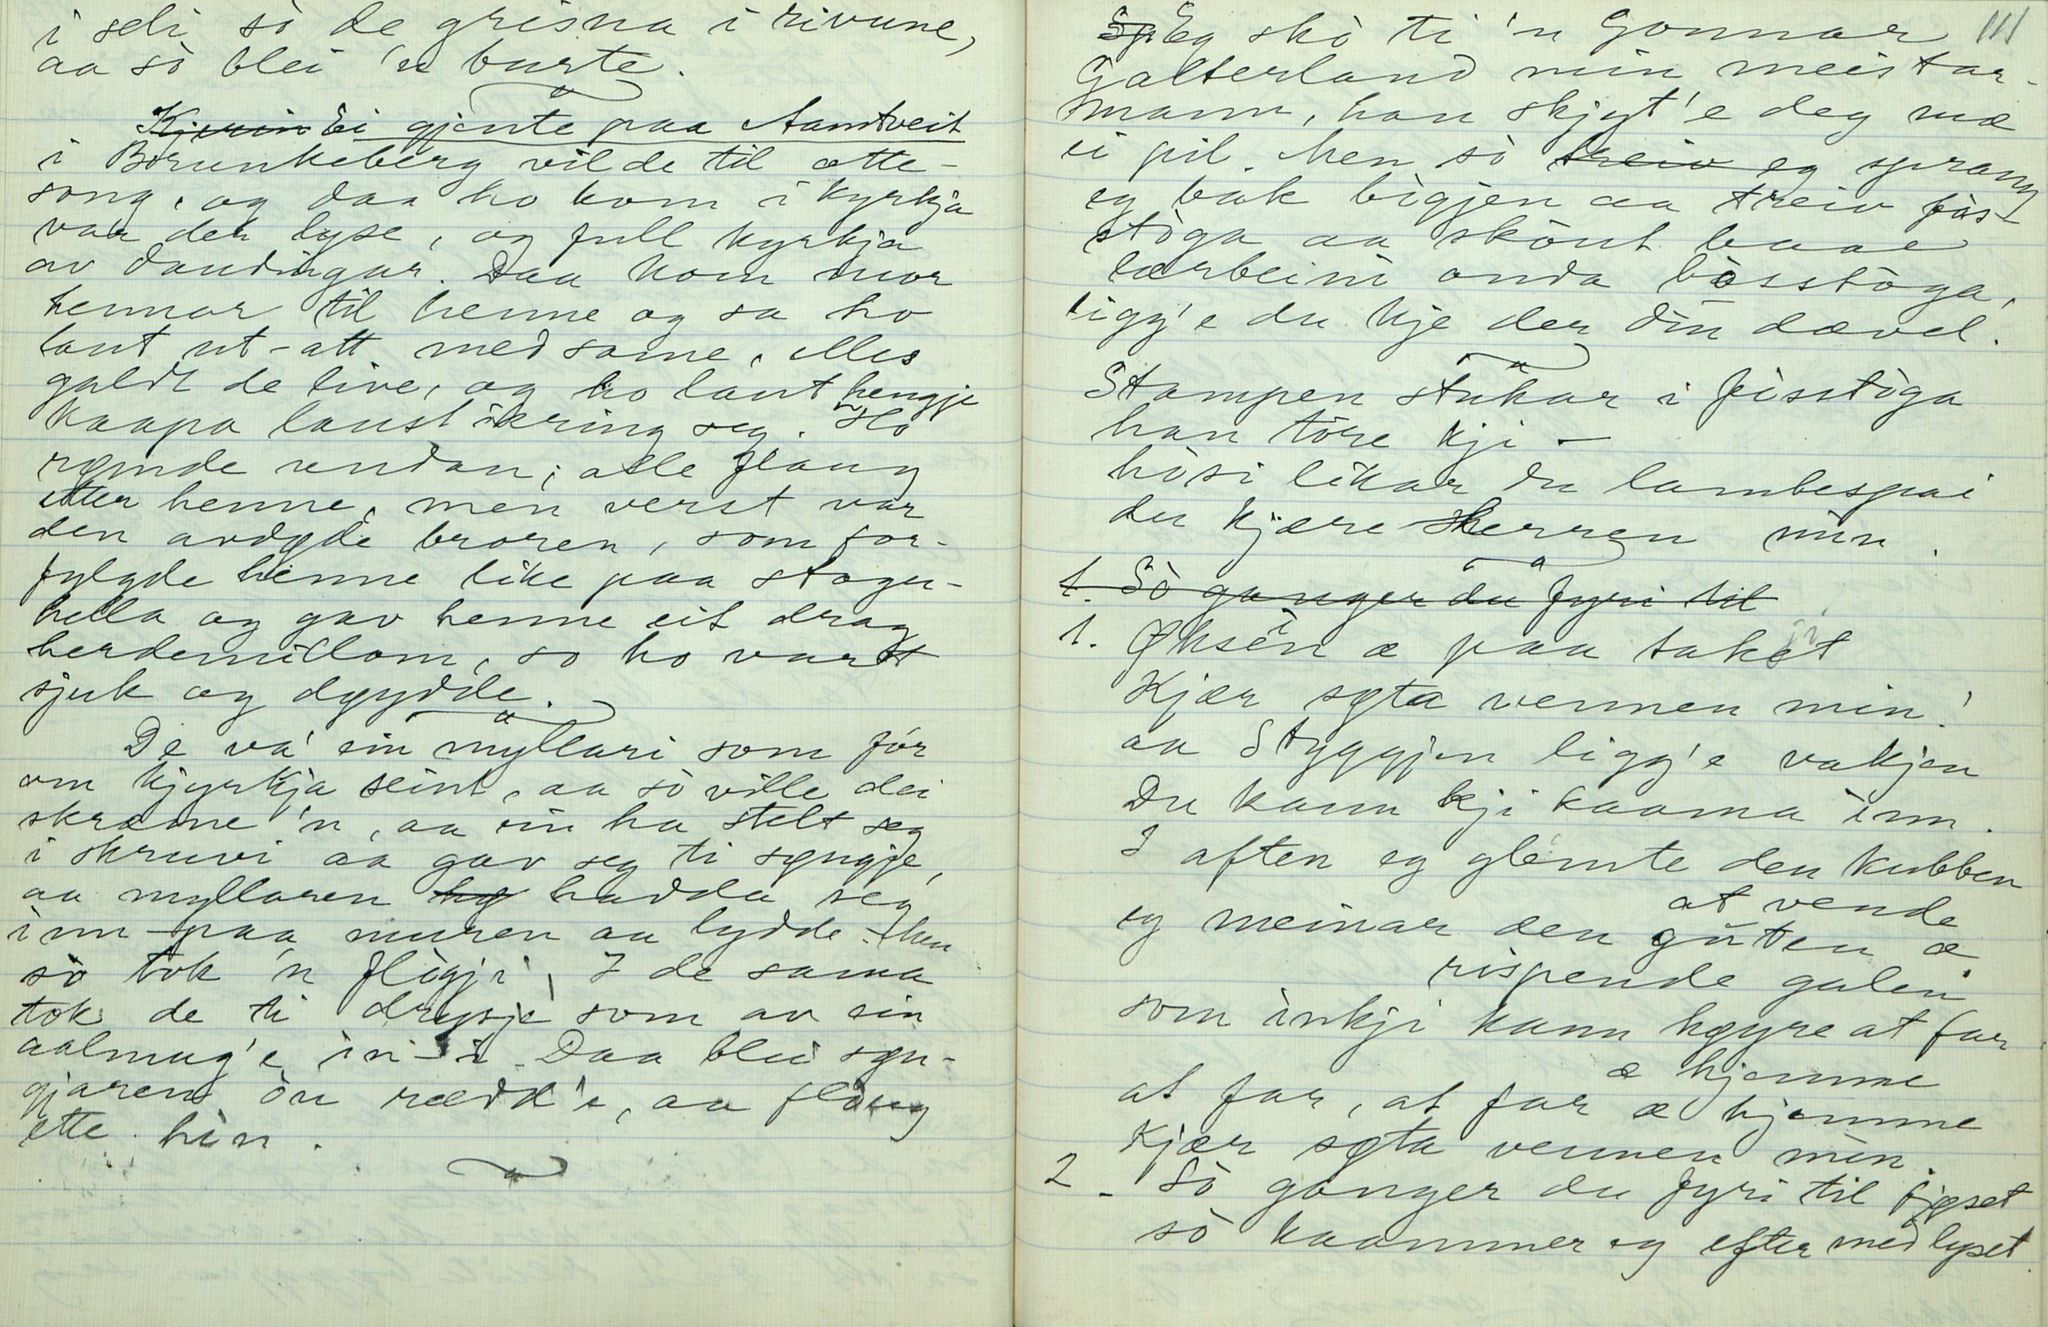 i seli so de grisna i rivune,
aa so blei 'n burte.
Kjerin Ei gjente paa Aamtveit
i Brunkeberg vilde til otte-
song, og daa ho kom i kyrkja
var der lyse, og full kyrkja
av daudingar. Daa kom mor
hennar til henne og sa ho
laut ut-att med same, elles
galdt de live, og ho laut hengje
kaapa laust ikring seg. Ho
rømde undan; alle flaug
etter henne, men verst var
den avdøde broren, som for-
fylgde henne like paa stogu-
hella og gav henne eit drag
herdemillom, so ho vart
sjuk og døydde.
De va' ein myllari som fór
om kjyrkja seint, aa so ville dei
skræme 'n, aa ein ha stelt seg
i skruvi aa gav seg ti syngje,
aa myllaren hadda seg
inn paa muren aa lydde. Men
so tok 'n fligji, I de sama
tok de ti drysje som av ein
aalmug'e in-i. Daa blei syn-
gjaren òn rædd'e, aa flaug
ette hin.
111
Sp Eg skò ti 'n Gonnar
Galterland min meistar-
mann, han skjyt'e deg mæ
ei pil. Men so treiv eg sprang
eg bak bigjen aa treiv fòs-
stòga aa skònt baae
lærbeini onda bòsstòga,
ligg'e du kje der din dævel.
Stampen stukar i fisstòga
han töre kji –
hòsi likar du lambespai
du kjære Herren min.
1. Sò ganger du fyri til
1. Øksèn æ paa taket
Kjær søta vennen min!
aa Styggjen ligg'e vakjen
Du kann kji kaama inn.
I aften eg glemte den kubben
at vende
eg meinar den guten æ
rispende galen
som inkji kann høyre at far
æ hjemme
at far, at far æ hjemme
Kjær søta vennen min.
2. Sò ganger du fyri til fjøset
sò kaammer eg efter med lyset